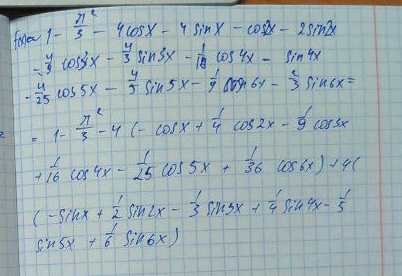 f(x)= 1 - π²/3 - 4cosx - 4 sinx - cos2x - 2sin2x
- 4/9 cos3x - 4/3 sin3x - 1/16 cos4x - sin4x
- 4/25 cos5x - 4/5 sin5x - 1/9 cos6x - 2/3 sin6x =
= 1 - π²/3 - 4 ( - cosx + 1/4 cos2x - 1/9 cos3x
+ 1/16 cos4x - 1/25 cos5x + 1/36 cos6x) + 4(
( - sinx + 1/2 sin2x - 1/3 sin3x + 1/4 sin4x - 1/5
sin5x + 1/6 sin6x)